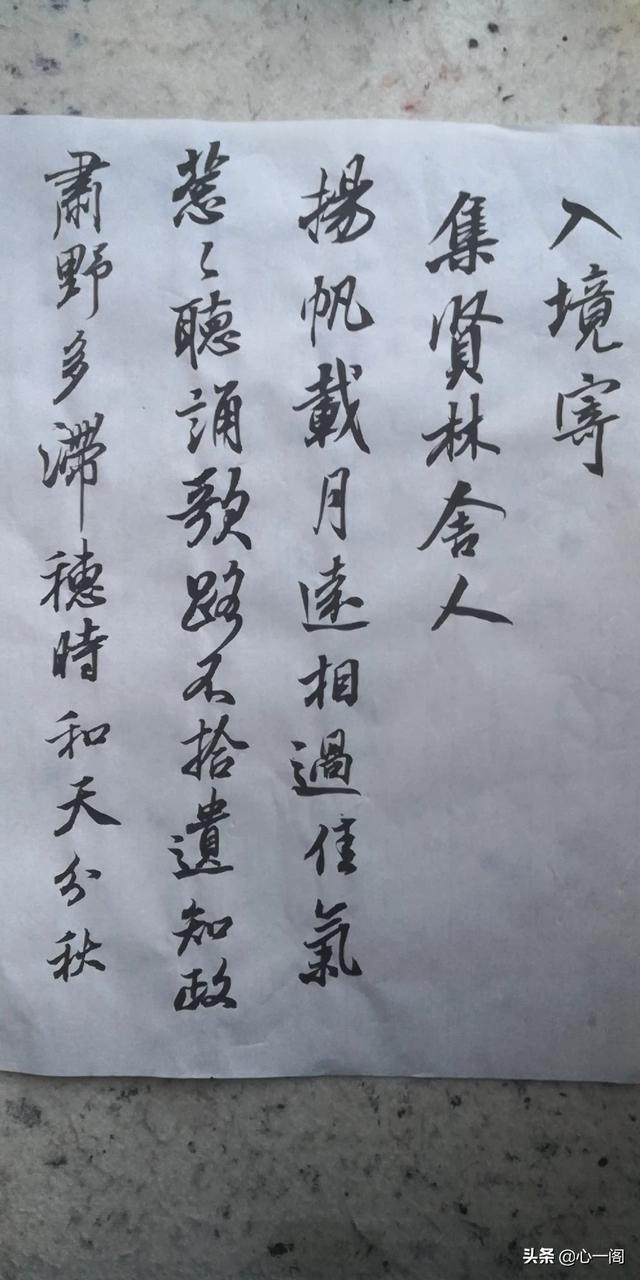 入境寄
集賢林舍人
揚帆載月遠相過佳氣
葱〻聽誦歌路不拾遺知政
肅野多滯穗時和天分秋
头条 @心一阁